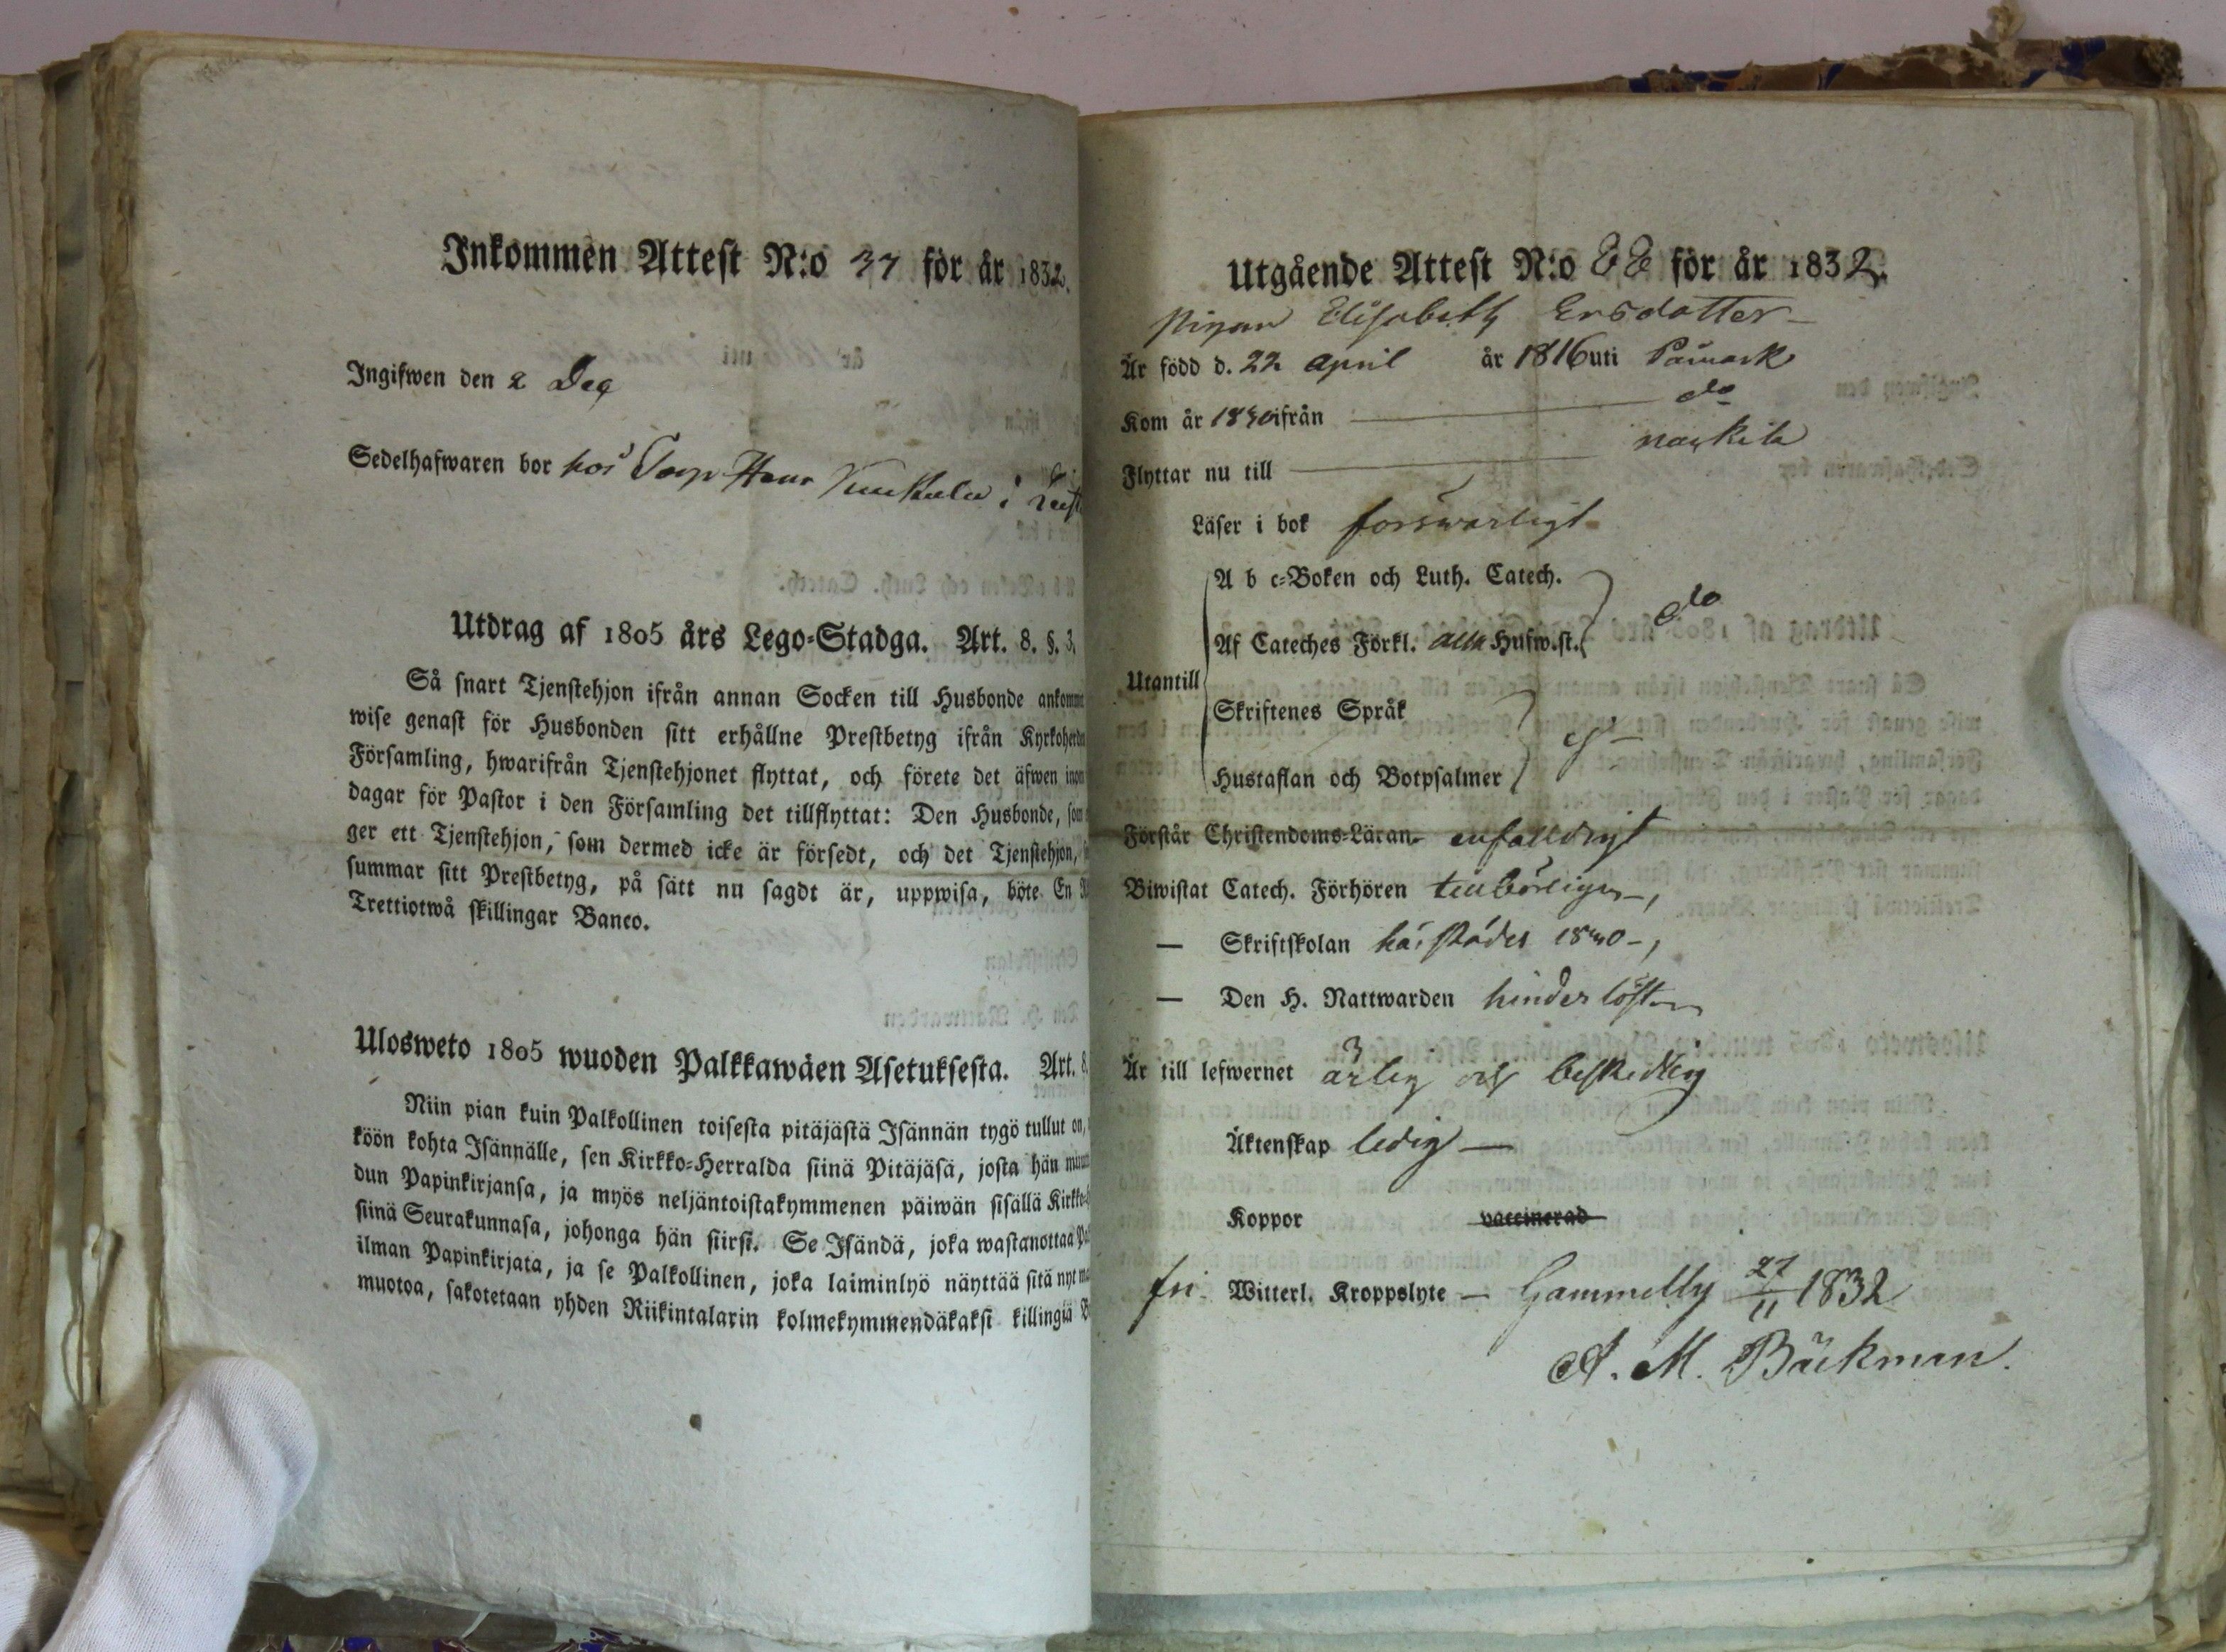 Inkommen Attest N:o 37 för år 1832.
Ingifwen den 2 Dec
Sedelhafwaren bor hos Torp Henr i
Utdrag af 1805 års Lego-Stadga. Art. 8. §. 3.
Så snart Tjenstehjon ifrån annan Socken till Husbonde
wise genast för Husbonden sitt erhållne Prestbetyg ifrån
Församling, hwarifrån Tjenstehjonet flyttat, och förete det äfwen
dagar för Pastor i den Församling det tillflyttat: Den Husbonde, som
ger ett Tjenstehjon, som dermed icke är försedt, och det Tjenstehjon,
summar sitt Prestbetyg, på sätt nu sagdt är, uppwisa, böte En
Trettiotwå skillingar Banco.
Ulosweto 1805 wuoden Palkkawäen Asetuksesta. Art. 8.
Niin pian kuin Palkollinen toisesta pitäjästä Isännän tygö tullut on,
köön kohta Isännälle, sen Kirkko-Herralda siinä Pitäjäsä, josta hän
dun Papinkirjansa, ja myös neljäntoistakymmenen päiwän sisällä
siinä Seurakunnasa, johonga hän siirsi. Se Isändä, joka wastanottaa
ilman Papinkirjata, ja se Palkollinen, joka laiminlyö näyttää sitä nyt
muotoa, sakotetaan yhden Riikintalarin kolmekymmendäkaksi killingiä
Utgående Attest N:o 88 för år 1832.
Pigan Elisabeth Ersdotter
Är född d. 22 April år 1816 uti Påmark
Kom år 1830 ifrån do
Flyttar nu till
Läser i bok forswarligt
A b c-Boken och Luth. Catech.
do
Af Cateches Förkl. alla Husw.st.
Utantill
Skriftenes Språk
ej
Hustaflan och Botpsalmer
Förstår Christendoms-Läran enfalldigt
Biwistat Catech. Förhören tillbörligen,
— Skriftskolan härstädes 1830,
— Den H. Nattwarden hinderlöst
Är till lefwernet ärlig och beskedlig
Äktenskap ledig
Koppor vaccinerad
fri Witterl. Kroppslyte — Gammelby 27/11 1832
A. M. Bäckman.